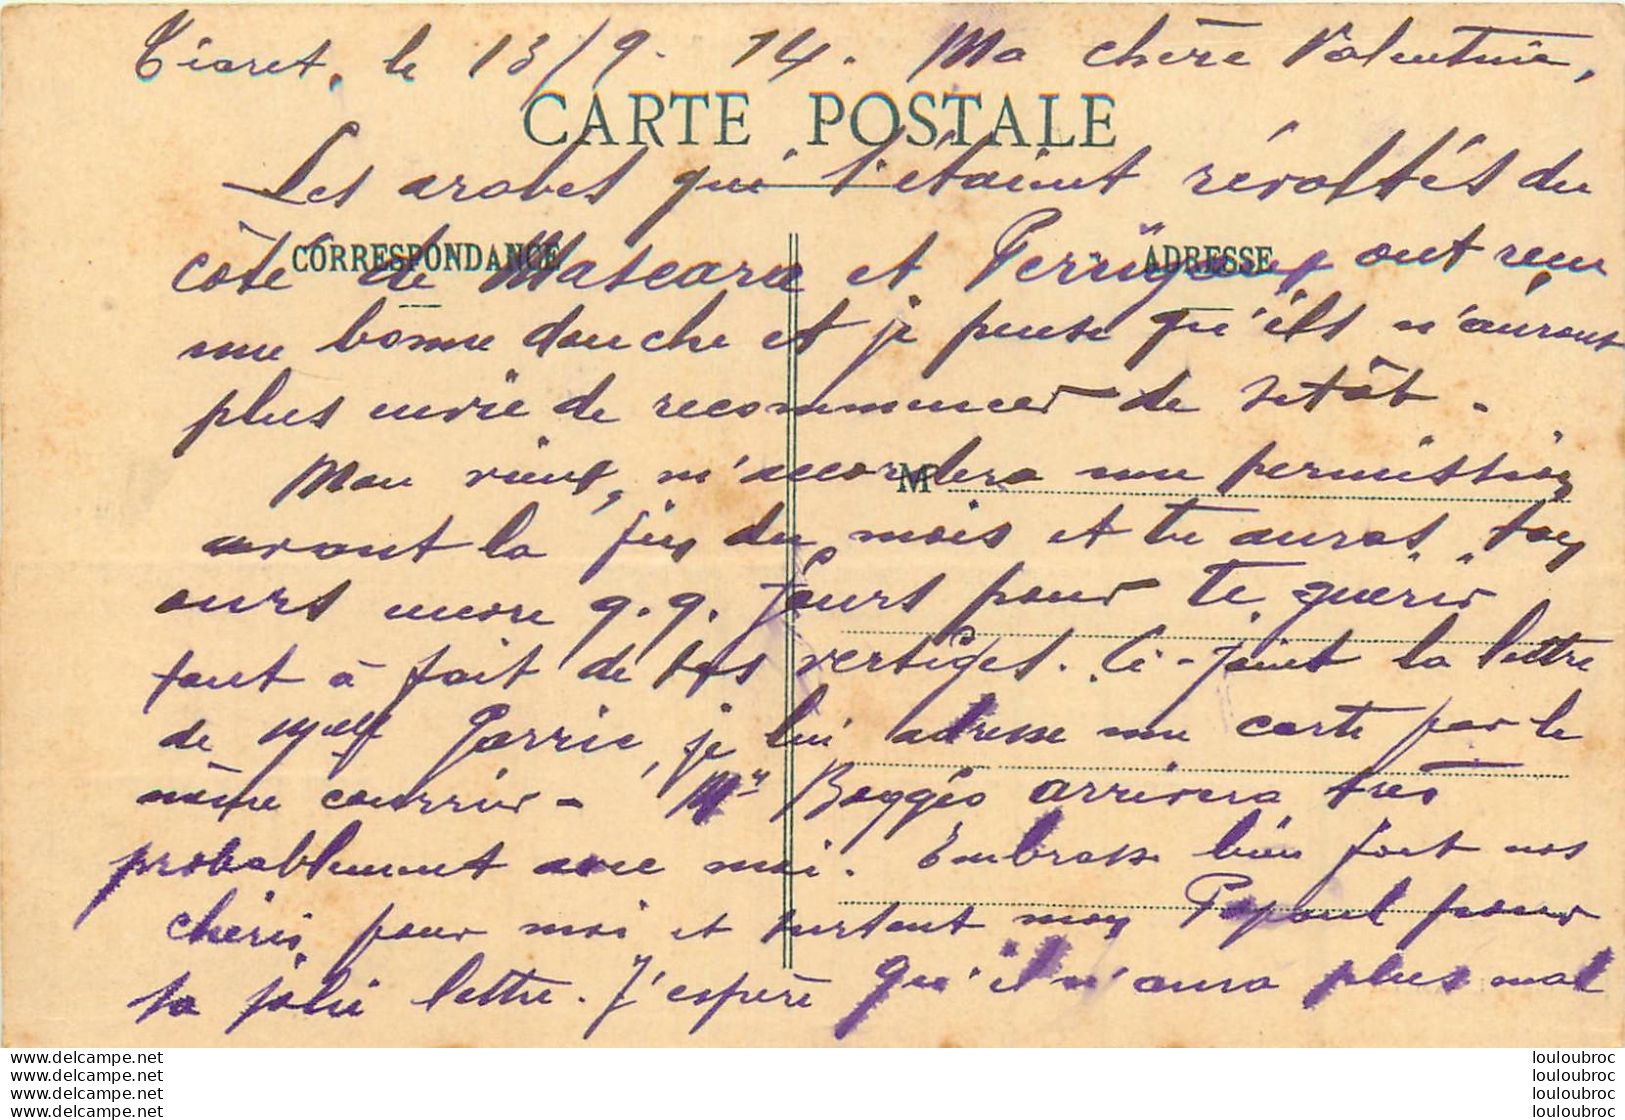 Tiaret, le 13/9. 14. Ma chère Valentine,
CARTE POSTALE
Les arabes qui s'étaient révoltés du
CORRESPONDANCE
ADRESSE
côté de Mascara et ont reçu
une bonne douche et je pense qu'ils n'auront
plus envie de recommencer de sitôt.
M
Mon vieux, m'accordera une permission
avant la fin du mois et tu auras touj
ours encore q.q. jours pour te guérir
tout à fait de tes vertiges. Ci-joint la lettre
de Melle je lui adresse une carte par le
même courrier - Mr Boggio arrivera très
probablement avec moi. Embrasse bien fort nos
chéris pour moi et surtout mon Papoul pour
sa jolie lettre. J'espère qu'il n'aura plus mal
www.delcampe.net
www.delcampe.net
www.delcampe.net
www.delcampe.net
louloubroc
louloubroc
louloubroc
louloubroc